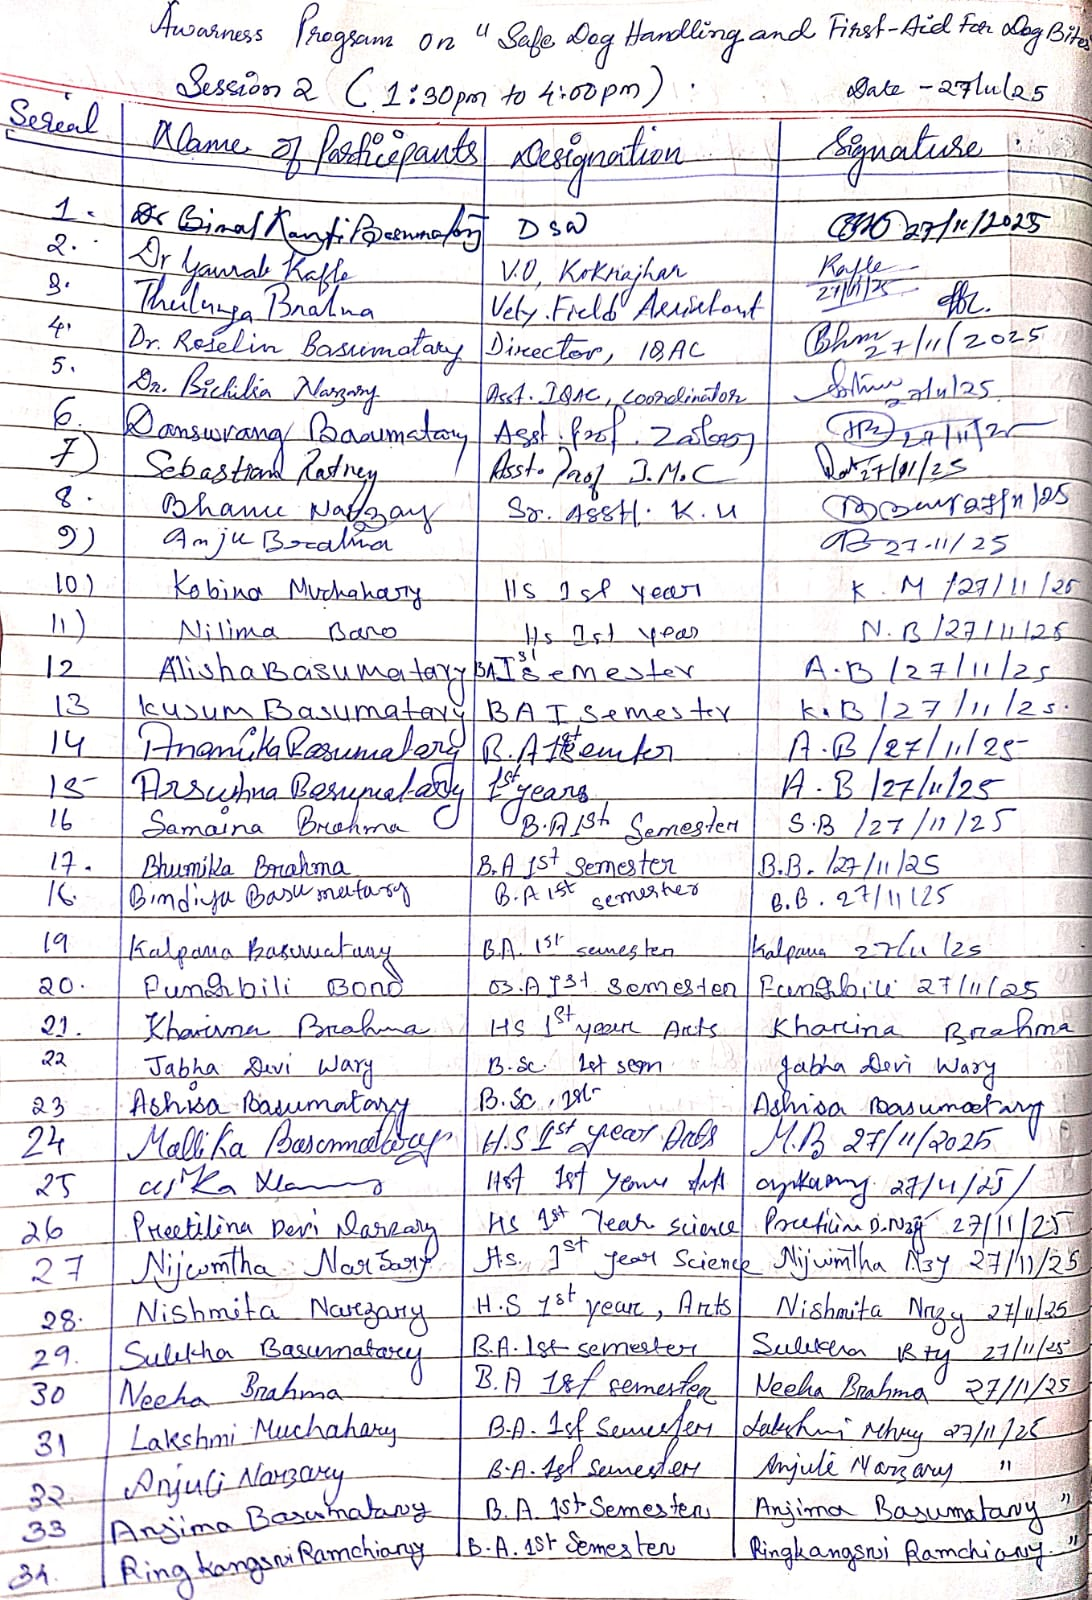 Awarness Program on "Safe Dog Handling and First-Aid For Dog Bites
Session 2 (1:30pm to 4:00pm) Date - 27/11/25
Sereal Name of Participants Designation Signature
1. Dr Bimal Kanti Basumatary DSW 27/11/2025
2. Dr Gaurab Kafle V.O, Kokrajhar Kafle 27/11/25
3. Brahma Vety. Field Assistant
4. Dr. Roselin Basumatary Director, IQAC 27/11/2025
5. Dr. Bichilia Narzary Asst. IQAC, coordinator 27/11/25
6. Danswrang Basumatary Asst. Prof. Zoology 27/11/25
7) Sebastian Asst. Prof J.M.C 27/11/25
8. Bhanu Narzary Sr. Asstt. K.U 27/11/25
9) Anju Brahma AB 27-11/25
10) Kobina Muchahary HS 1st year K. M /27/11/25
11) Nilima Baro Hs 1st year N.B /27/11/25
12 Alisha Basumatary BA Ist semester A.B /27/11/25
13 Kusum Basumatary BA I semester K.B /27/11/25.
14 Anamika Basumatary B.A 1st A.B /27/11/25
15 Basumatary 1st years A.B /27/11/25
16 Samaina Brahma B.A 1st Semester S.B /27/11/25
17. Bhumika Brahma B.A 1st semester B.B. /27/11/25
16. Bindiya Basumatary B.A 1st semester B.B. 27/11/25
19 Kalpana Basumatary B.A. 1st semester Kalpana 27/11/25
20. Pungbili Boro B.A 1st semester Pungbili 27/11/25
21. Kharina Brahma HS 1st year Arts Kharina Brahma
22 Jabha Devi Wary B.Sc. 1st sem Jabha Devi Wary
23 Ashisa Basumatary B.Sc, 1st Ashisa Basumatary
24 Mallika Basumatary H.S 1st year Arts M.B 27/11/2025
25 1st Year 27/11/25/
26 Preetilina Devi Narzary HS 1st Year science Preetilin D. Nzy 27/11/25
27 Nijwmtha Narzary Hs. 1st year Science Nijwmtha Nzy 27/11/25
28. Nishmita Narzary H.S 1st year, Arts Nishmita Nrzy 27/11/25
29. Sulekha Basumatary B.A. 1st semester Sulekha Bty 27/11/25
30 Neeha Brahma B.A 1st semester Neeha Brahma 27/11/25
31 Lakshmi Muchahary B.A. 1st Semester Lakshmi Mhry 27/11/25
32. Anjuli Narzary B.A. 1st Semester Anjuli Narzary "
33 Anjima Basumatary B.A. 1st Semester Anjima Basumatary "
34. Ringkangsri Ramchiary B.A. 1st Semester Ringkangsri Ramchiary. "